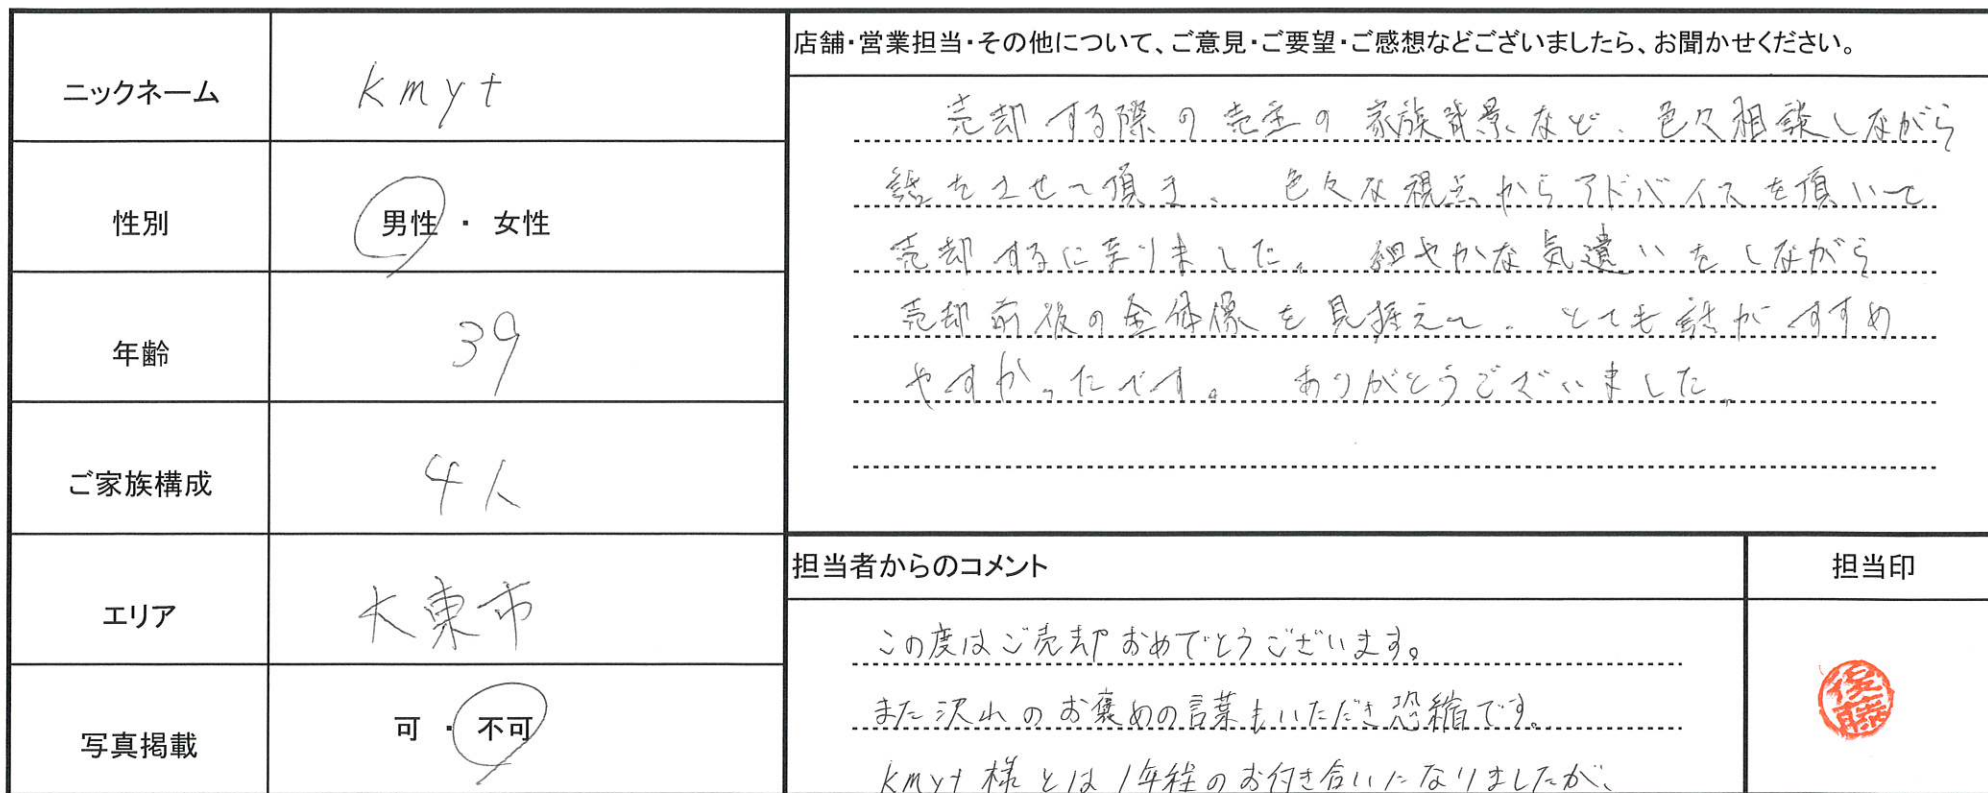 ニックネーム
kmyt
性別
男性 ・ 女性
年齢
39
ご家族構成
4人
エリア
大東市
写真掲載
可 ・ 不可
店舗・営業担当・その他について、ご意見・ご要望・ご感想などございましたら、お聞かせください。
売却する際の売主の家族背景など、色々相談しながら
話をさせて頂き、色々な視点からアドバイスを頂いて
売却するに至りました。細やかな気遣いをしながら
売却前後の全体像を見据えて、とても話がすすめ
やすかったです。ありがとうございました。
担当者からのコメント
この度はご売却おめでとうございます。
また沢山のお褒めの言葉もいただき恐縮です。
kmyt様とは1年程のお付き合いになりましたが、
担当印
後藤